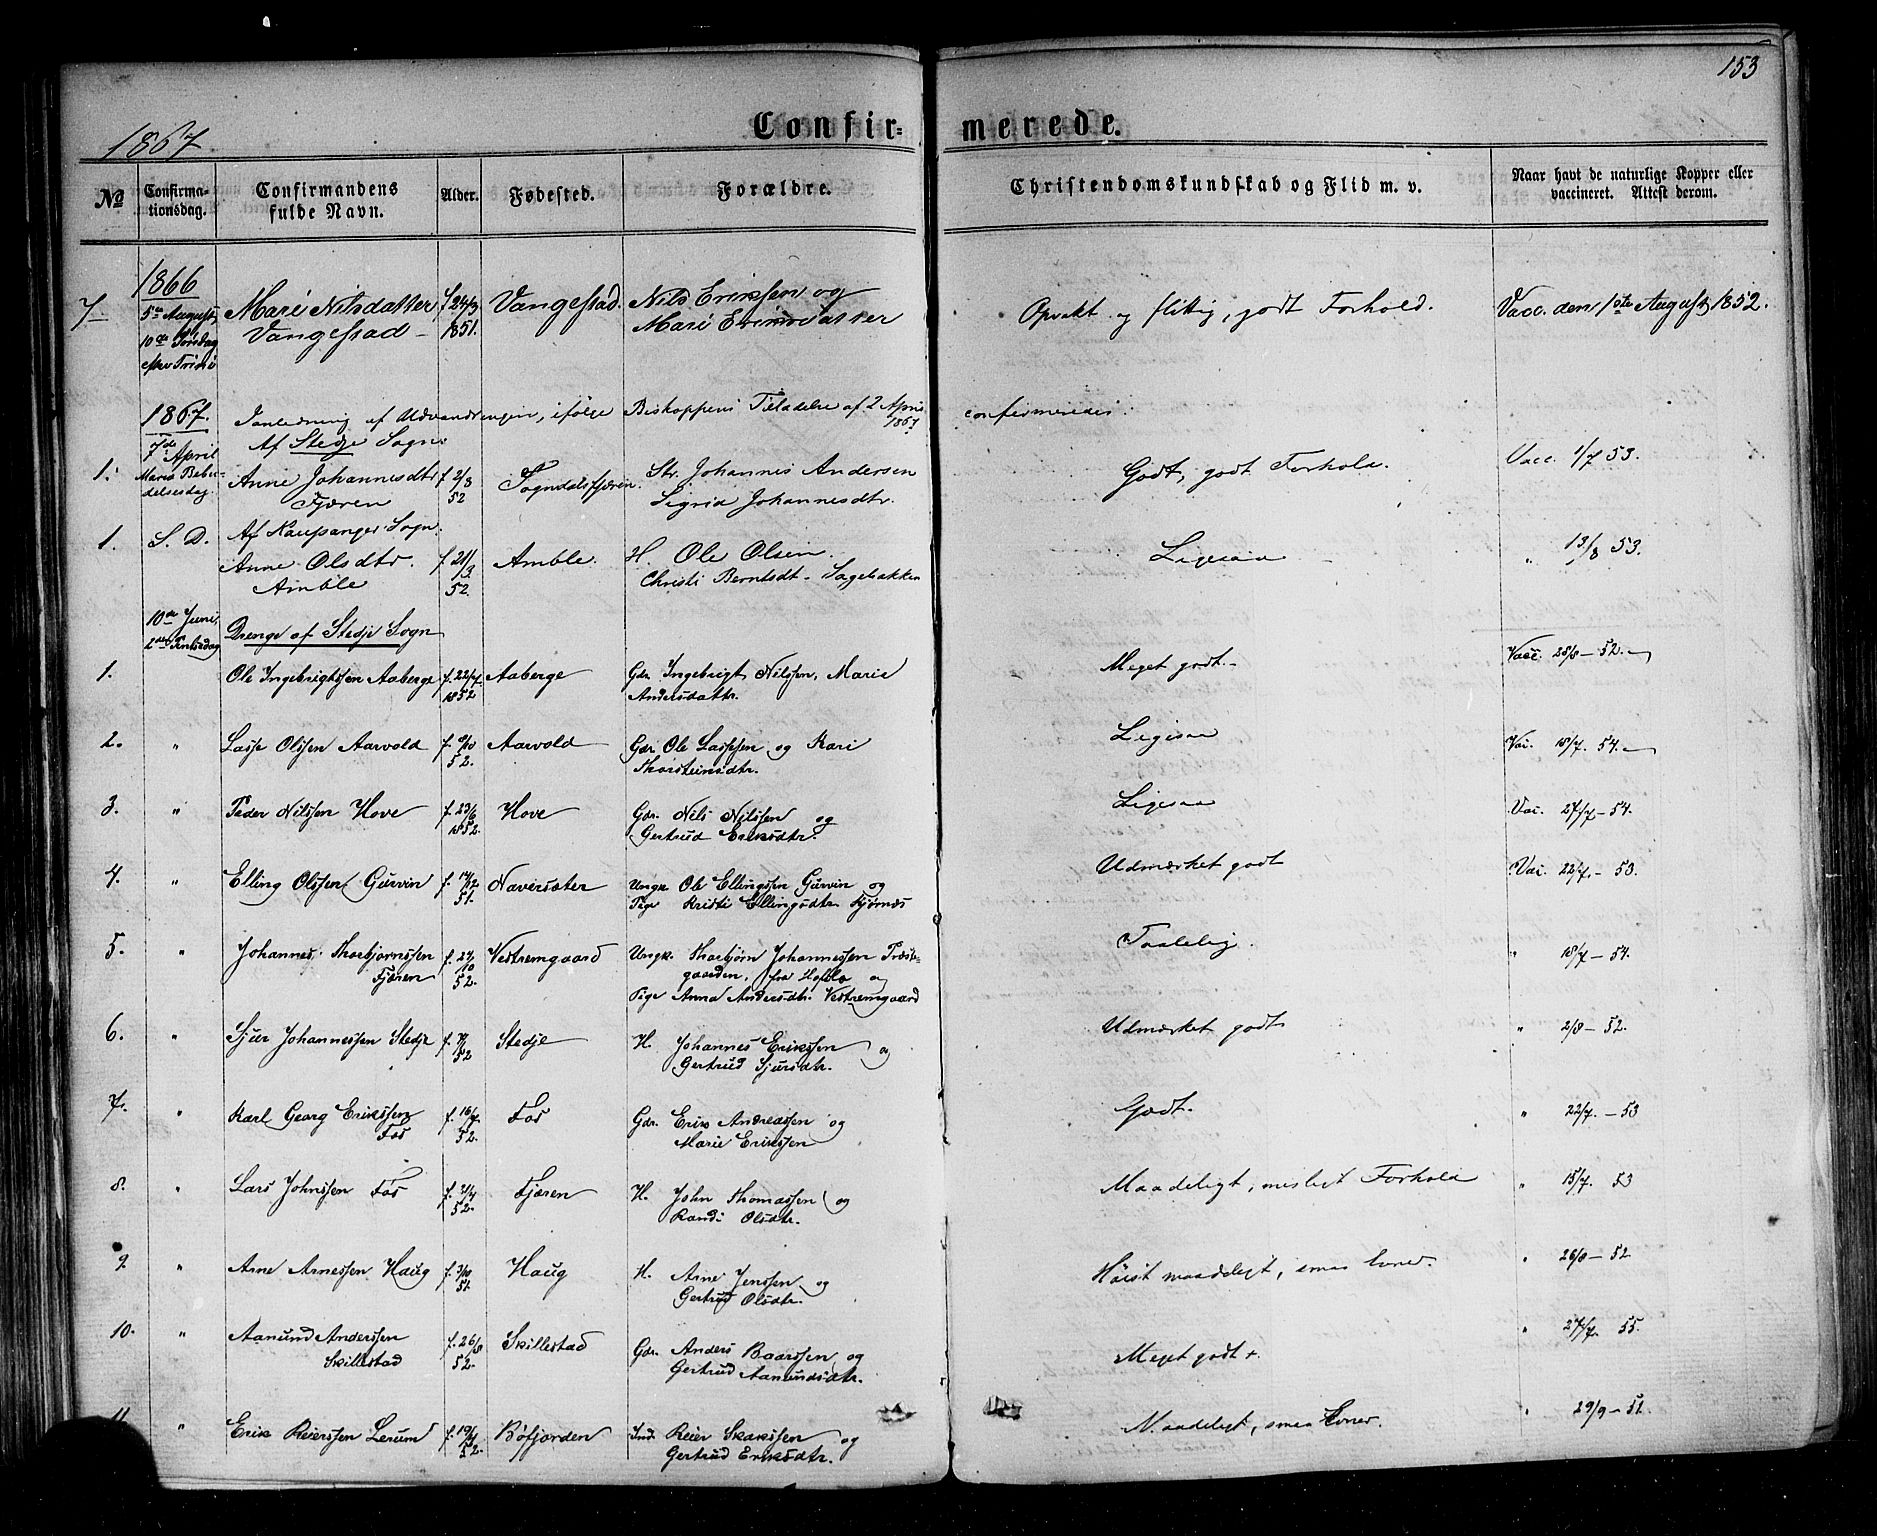 153
1867.
Confirmerede.
No
Confirmationsdag.
Confirmandens fulde Navn.
Alder.
Fødested.
Forældre.
Christendomskundskab og Flid m. v.
Naar havt de naturlige Kopper eller vaccineret. Attest derom.
1866
7 5te August, 10de Søndag efter Trinit. Mari Nilsdatter Vangestad f. 24/3 1851. Vangestad. Nils Eriksen og Mari Eriksdatter Opvakt og flittig, godt Forhold. Vacc. den 1ste August 1852.
1867. I anledning af Udvandringen, ifølge Biskoppens Tilladelse af 2 April 1867 confirmeredes:
7de April Af Stedje Sogn:
1. Maria Bebudelsesdag. Anne Johannesdtr Fjæren f. 2/3 52 Sogndalsfjæren. Str. Johannes Andersen Sigrid Johannesdtr. Godt, godt Forhold. Vacc. 1/7 53.
Af Kaupanger Sogn:
1. S. D. Anne Olsdtr. Amble f. 21/3 52. Amble. H. Ole Olsen Christi Berntsdt. Sagebakken Ligesaa " 13/8 53.
10de Juni, 2den Pintsedag Drenge af Stedje Sogn
1. Ole Ingebrigtssen Aaberge f. 22/7 1852 Aaberge Gdr. Ingebrigt Nilssen, Marie Andersdattr. Meget godt. Vacc. 28/8 – 52.
2. " Lasse Olssen Aarvold f. 9/10 52. Aarvold Gdr. Ole Lassen og Kari Thorsteinsdtr. Ligesaa Vac. 18/7. 54.
3. " Peder Nilssen Hove f. 23/6 1852. Hove Gdr. Nils Nilssen og Gertrud Eriksdtr. Ligesaa Vac. 27/7 – 54.
4. " Elling Olssen Gurvin f. 14/12 51. Naversæter Ungk. Ole Ellingssen Gurvin og Pige Kristi Ellingsdtr. Fjørnæs Udmærket godt Vac. 22/7. – 53.
5. " Johannes Thorbjørnssen Fjæren f. 24/10 52. Vestremgaard Ungk. Thorbjørn Johannessen Prestegaarden, fra Hafslo og Pige Anna Andersdtr. Vestremgaard Taalelig. " 18/7 – 54.
6. " Sjur Johannessen Stedje 52 Stedje H. Johannes Erikssen og Gertrud Sjursdtr. Udmærket godt " 2/8 – 52.
7. " Karl Georg Erikssen Fos f. 16/7 52. Fos Gdr. Erik Andreassen og Marie Erikssen Godt. " 22/7. – 53
8. " Lars Johnssen Fos f. 2/4 52. Fjæren H. John Thomassen og Randi Olsdtr. Maadeligt, misligt Forhold " 15/7. 53
9. " Arne Arnessen Haug f. 3/10 51. Haug H. Arne Jenssen og Gertrud Olsdtr. Høist maadeligt, smaa Evner. " 26/8 – 52
10. " Aamund Anderssen Skillestad f. 26/8 52. Skillestad Gdr. Anders Baarssen og Gertrud Aamundsdtr. Meget godt +. " 27/7. 55.
11 " Erik Reierssen Lerum f. 19/4 52. Bøfjorden Ind. Reier Skakssen og Gertrud Eriksdtr. Maadeligt, smaa Evner. " 29/9 – 52.